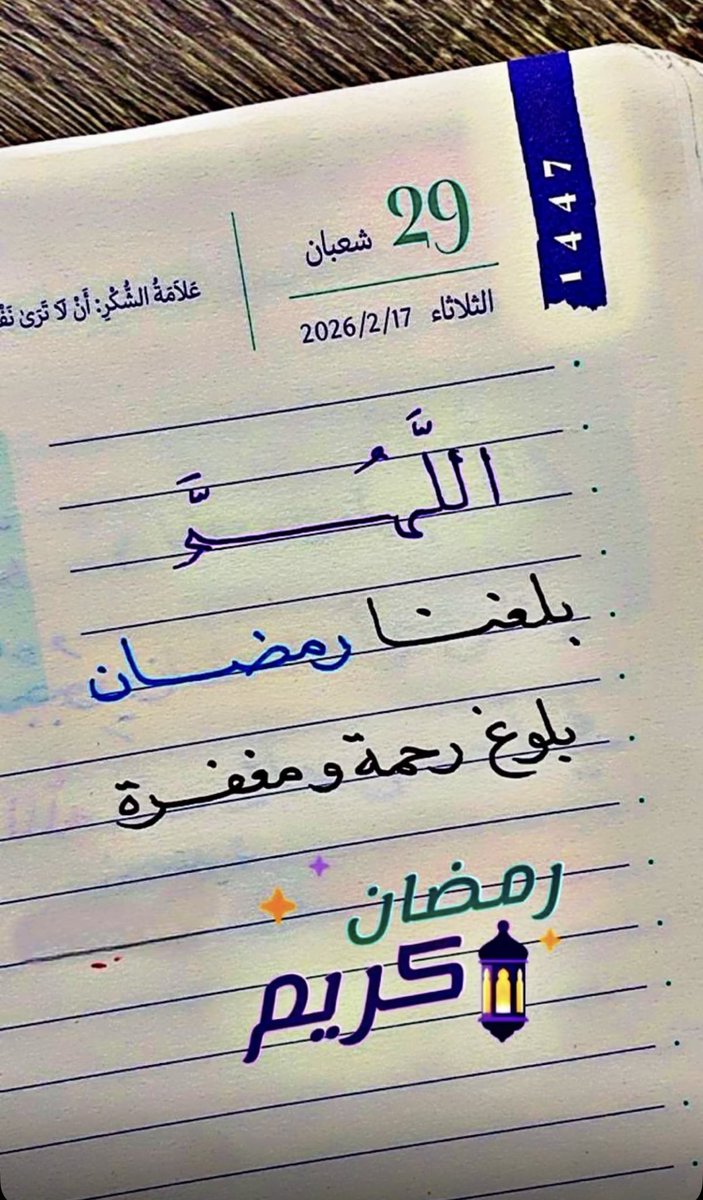 1447
29 شعبان
الثلاثاء 2026/2/17
عَلاَمَةُ الشُّكْرِ: أَنْ لاَ تَرَىٰ
اللَّهُمَّ
بلغنا رمضان
بلوغ رحمة و مغفرة
رمضان
كريم